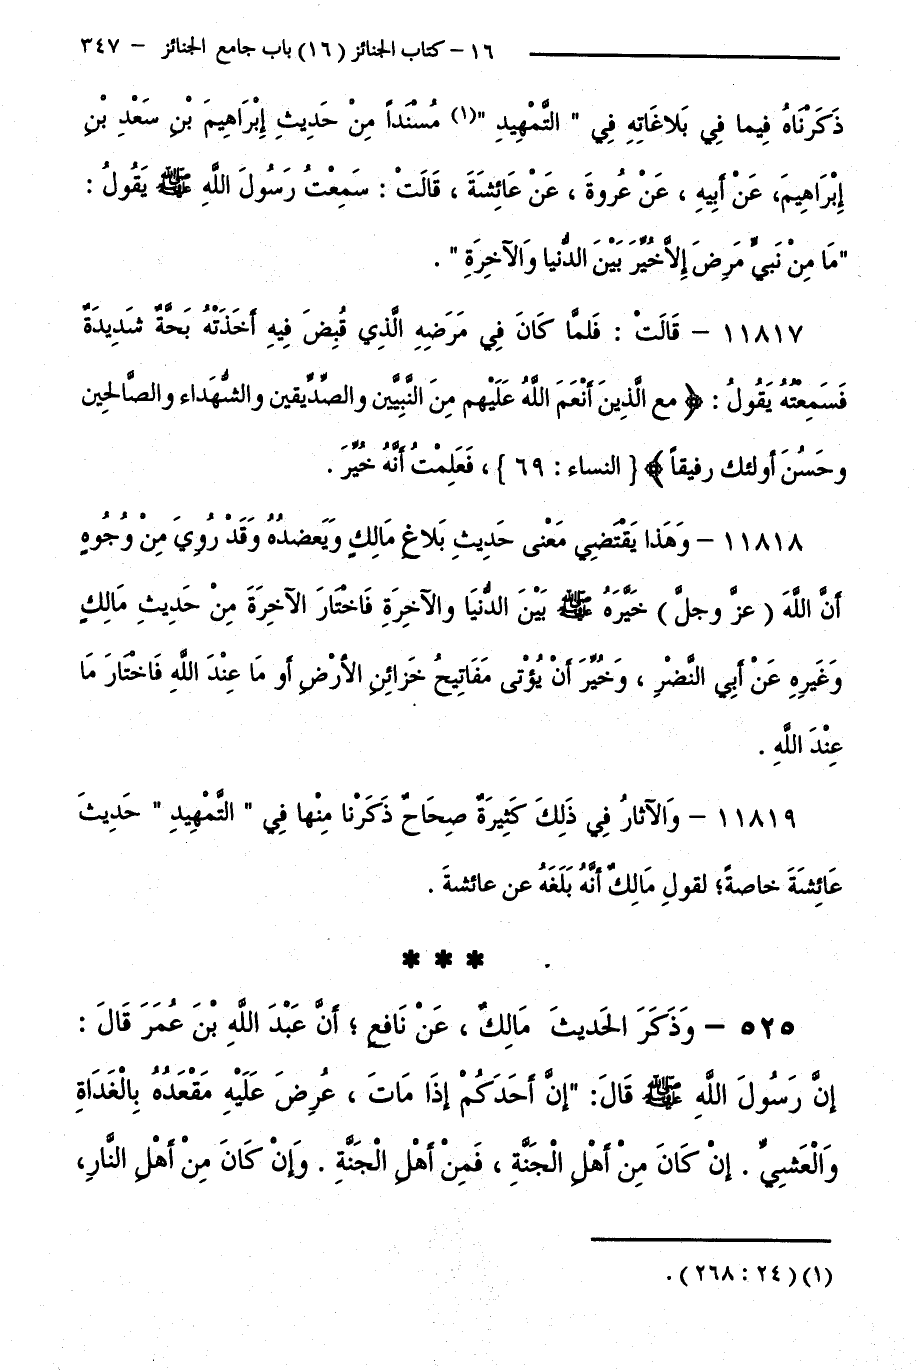 ١٦ - كتاب الجنائز (١٦) باب جامع الجنائز - ٣٤٧
ذَكَرْنَاهُ فِيما فِي بَلاغَاتِهِ فِي " التَّمْهِيدِ "(١) مُسْنَداً مِنْ حَدِيثِ إِبْرَاهِيمَ بْنِ سَعْدِ بْنِ
إِبْرَاهِيمَ، عَنْ أَبِيهِ ، عَنْ عُروةَ ، عَنْ عَائِشَةَ ، قَالَتْ : سَمِعْتُ رَسُولَ اللَّهِ ﷺ يَقُولُ :
"مَا مِنْ نَبيٍّ مَرِضَ إِلاَّ خُيِّرَ بَيْنَ الدُّنيا وَالآخِرَةِ " .
١١٨١٧ - قَالَتْ : فَلمَّا كَانَ فِي مَرَضِهِ الَّذِي قُبِضَ فِيهِ أَخَذَتْهُ بَحَّةٌ شَدِيدَةٌ
فَسَمِعْتُهُ يَقُولُ : ﴿ مع الَّذِينَ أَنْعَمَ اللَّهُ عَلَيْهم مِنَ النَّبِيِّين والصِّدِّيقين والشُّهَداء والصَّالحِين
وحَسُنَ أولئك رفيقاً ﴾ [ النساء : ٦٩ ] ، فَعَلِمْتُ أَنَّهُ خُيِّرَ .
١١٨١٨ - وَهَذا يَقْتَضِي مَعْنى حَدِيثِ بَلاغِ مَالِكٍ وَيَعضدُهُ وَقَدْ رُوِيَ مِنْ وُجُوهٍ
أَنَّ اللَّهَ ( عزَّ وجلَّ ) خَيَّرَهُ ﷺ بَيْنَ الدُّنيَا والآخِرَةِ فَاخْتَارَ الآخِرَةَ مِنْ حَدِيثِ مَالِكٍ
وَغَيرِهِ عَنْ أَبِي النَّضْرِ ، وَخُيِّرَ أَنْ يُؤْتى مَفَاتِيحُ خَزائِنِ الأرْضِ أو مَا عِنْدَ اللَّهِ فَاخْتَارَ مَا
عِنْدَ اللَّهِ .
١١٨١٩ - وَالآثارُ فِي ذَلِكَ كَثِيرَةٌ صِحَاحٌ ذَكَرْنا مِنْها فِي " التَّمْهِيدِ " حَدِيثَ
عَائِشَةَ خاصةً؛ لقولِ مَالِكٍ أَنَّهُ بَلَغَهُ عن عائشةَ .
* * *
٥٢٥ - وَذَكَرَ الحَدِيثَ مَالِكٌ ، عَنْ نَافِعٍ ؛ أَنَّ عَبْدَ اللَّهِ بْنَ عُمَرَ قَالَ :
إِنَّ رَسُولَ اللَّهِ ﷺ قَالَ: "إِنَّ أَحَدَكُمْ إِذَا مَاتَ ، عُرِضَ عَلَيْهِ مَقْعَدُهُ بِالْغَدَاةِ
وَالْعَشيِّ . إِنْ كَانَ مِنْ أَهْلِ الْجَنَّةِ ، فَمِنْ أَهْلِ الْجَنَّةِ . وَإِنْ كَانَ مِنْ أَهْلِ النَّارِ،
(١) (٢٤ : ٢٦٨) .